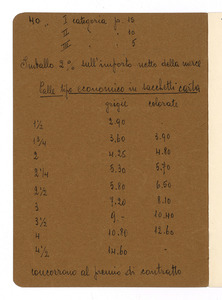 40. I categoria p. 15
II " " 10
III " " 5
Imballo 2% sull'importo netto della merce
Palle tipo economico in sacchetti carta
grigie colorate
1½ 2.90
1¾ 3.60 3.90
2 4.25 4.80
2¼ 5.30 5.70
2½ 5.80 6.50
3 7.20 8.10
3½ 9.- 10.40
4 10.80 12.60
4½ 14.60 -
concorrono al premio di contratto